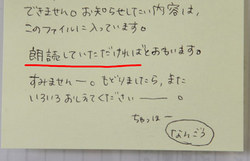 できません。お知らせしたい内容は、
このファイルに入っています。
朗読していただければとおもいます。
すみませんー。もどりましたら、また
いろいろおしえてくださいー。
ちゃっはー
なんごろ